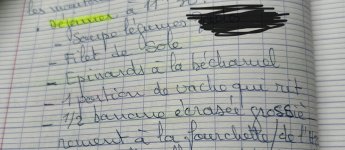 les
• Dejeuner à 11
- Soupe légumes
- Filet de Sole
- Epinards à la béchamel
- 1 portion de vache qui rit
- 1/2 banane écrasée grossiè
rement à la fourchette/de l'